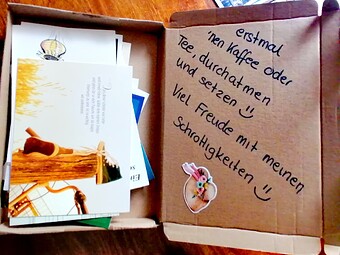 erstmal
'nen Kaffee oder
Tee, durchatmen
und setzen :)
Viel Freude mit meinen
Schrottigkeiten :)